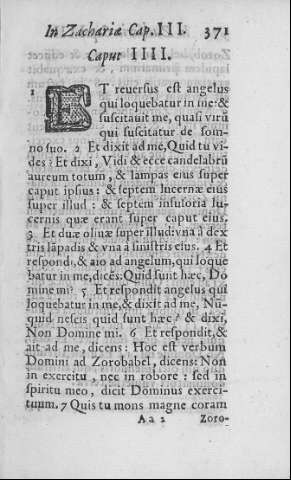 In Zachariæ Cap. III. 371
Caput IIII.
1 ET reversus est angelus
qui loquebatur in me: &
suscitavit me, quasi virũ
qui suscitatur de som-
no suo. 2 Et dixit ad me, Quid tu vi-
des? Et dixi, Vidi & ecce candelabrũ
aureum totum, & lampas eius super
caput ipsius: & septem lucernæ eius
super illud: & septem infusoria lu-
cernis quæ erant super caput eius.
3 Et duæ olivæ super illud: vna à dex
tris lãpadis & vna à sinistris eius. 4 Et
respondi, & aio ad angelum, qui loque
batur in me, dicẽs: Quid sunt hæc, Do
mine mi? 5 Et respondit angelus qui
loquebatur in me, & dixit ad me, Nũ-
quid nescis quid sunt hæc? & dixi,
Non Domine mi. 6 Et respondit, &
ait ad me, dicens: Hoc est verbum
Domini ad Zorobabel, dicens: Non
in exercitu, nec in robore: sed in
spiritu meo, dicit Dominus exerci-
tuum. 7 Quis tu mons magne coram
A a 2 Zoro-